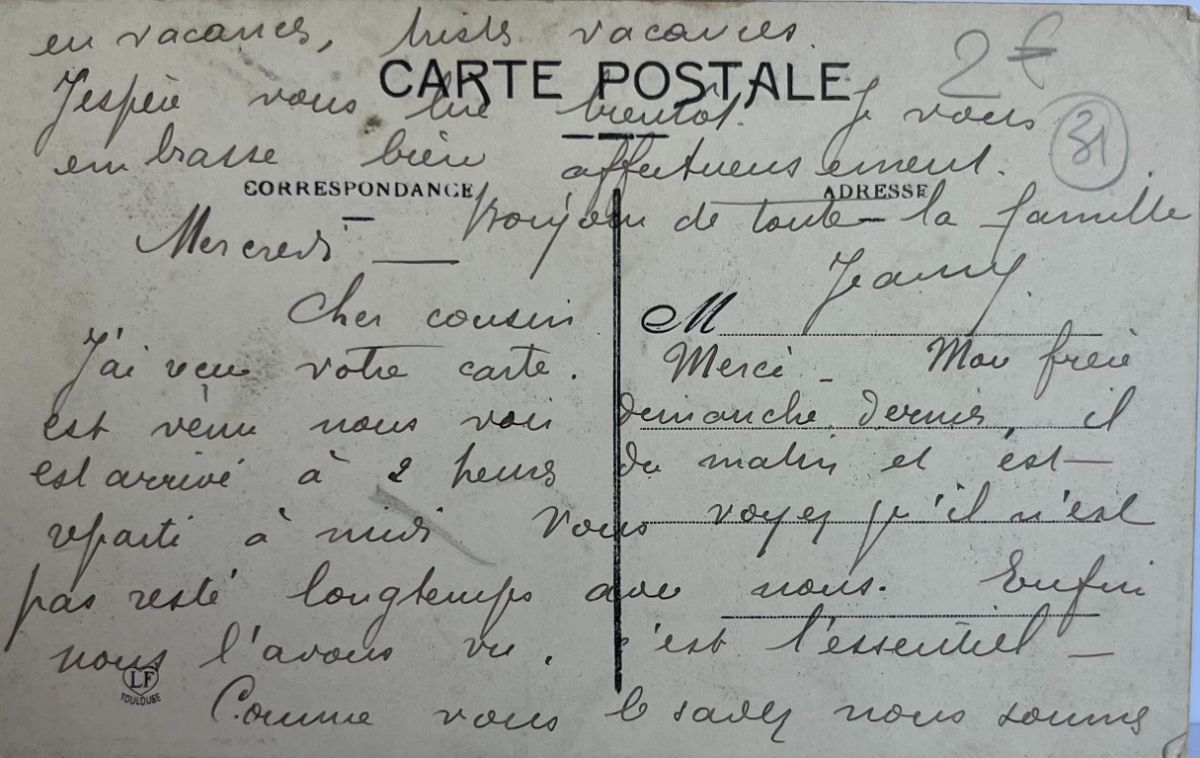 en vacances, trists vacances.
2€
CARTE POSTALE
J'espère vous lire bientôt. Je vous
31
embrasse bien affectueusement.
CORRESPONDANCE
ADRESSE
Bonjour de toute la famille
Mercredi —
Jeanny
Cher cousin
M
J'ai reçu votre carte. Merci - Mon frère
est venu nous voir demanche dernier, il
est arrivé à 2 heures du matin et est
reparti à midi Vous voyez qu'il n'est
pas resté longtemps avec nous. Enfin
nous l'avons vu. c'est l'essentiel -
LF
TOULOUSE
Comme vous le savez nous sommes